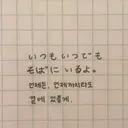 いつもいつでも
そばにいるよ。
언제든, 언제까지라도
곁에 있을게.